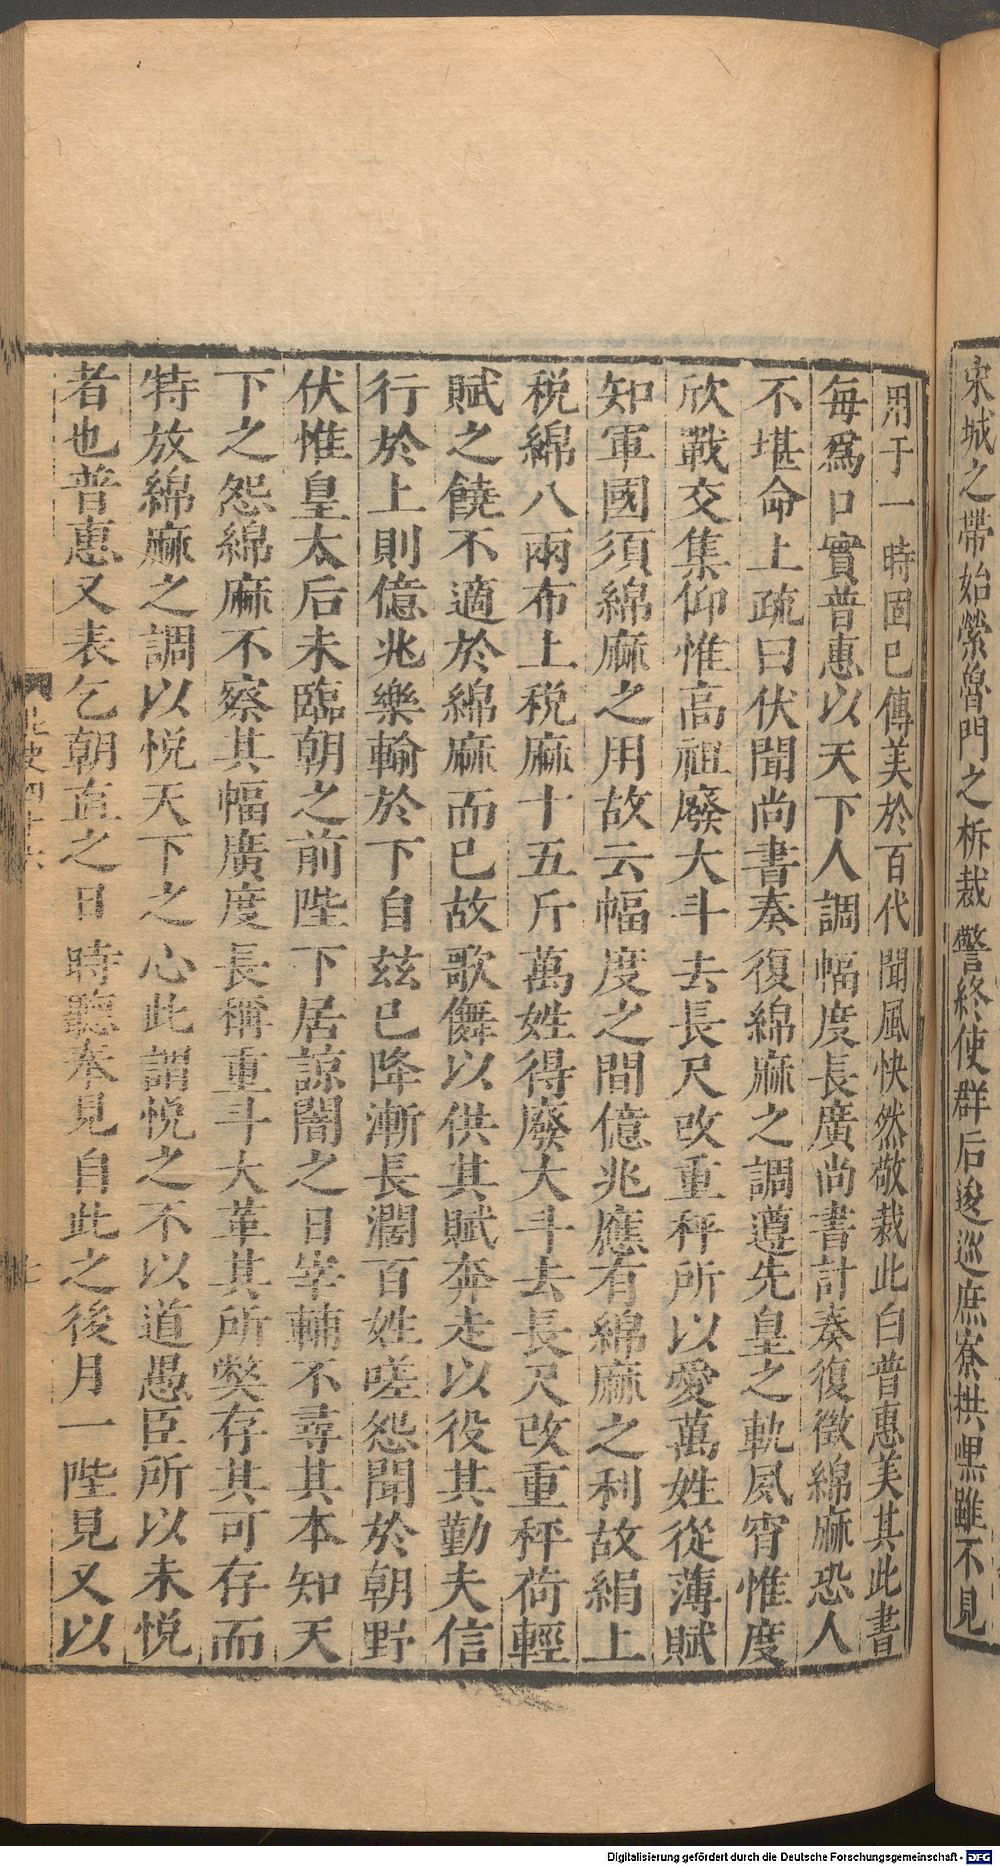 宋城之帶始縈魯門之柝裁警終使群后逡巡庶寮拱嘿雖不見
用于一時固已傳美於百代聞風快然敬裁此白普惠美其此書
每爲口實普惠以天下人調幅度長廣尚書計奏復徵綿麻恐人
不堪命上疏曰伏聞尚書奏復綿麻之調遵先皇之軌夙宵惟度
欣戰交集仰惟高祖廢大斗去長尺改重秤所以愛萬姓從薄賦
知軍國須綿麻之用故云幅度之間億兆應有綿麻之利故絹上
税綿八兩布上税麻十五斤萬姓得廢大斗去長尺改重秤荷輕
賦之饒不適於綿麻而已故歌儛以供其賦奔走以役其勤夫信
行於上則億兆樂輸於下自兹已降漸長濶百姓嗟怨聞於朝野
伏惟皇太后未臨朝之前陛下居諒闇之日宰輔不尋其本知天
下之怨綿麻不察其幅廣度長稱重斗大革其所獘存其可存而
特放綿麻之調以悅天下之心此謂悅之不以道愚臣所以未悅
者也普惠又表乞朝直之日時聽奉見自此之後月一陛見又以
北史四十六
Digitalisierung gefördert durch die Deutsche Forschungsgemeinschaft - DFG